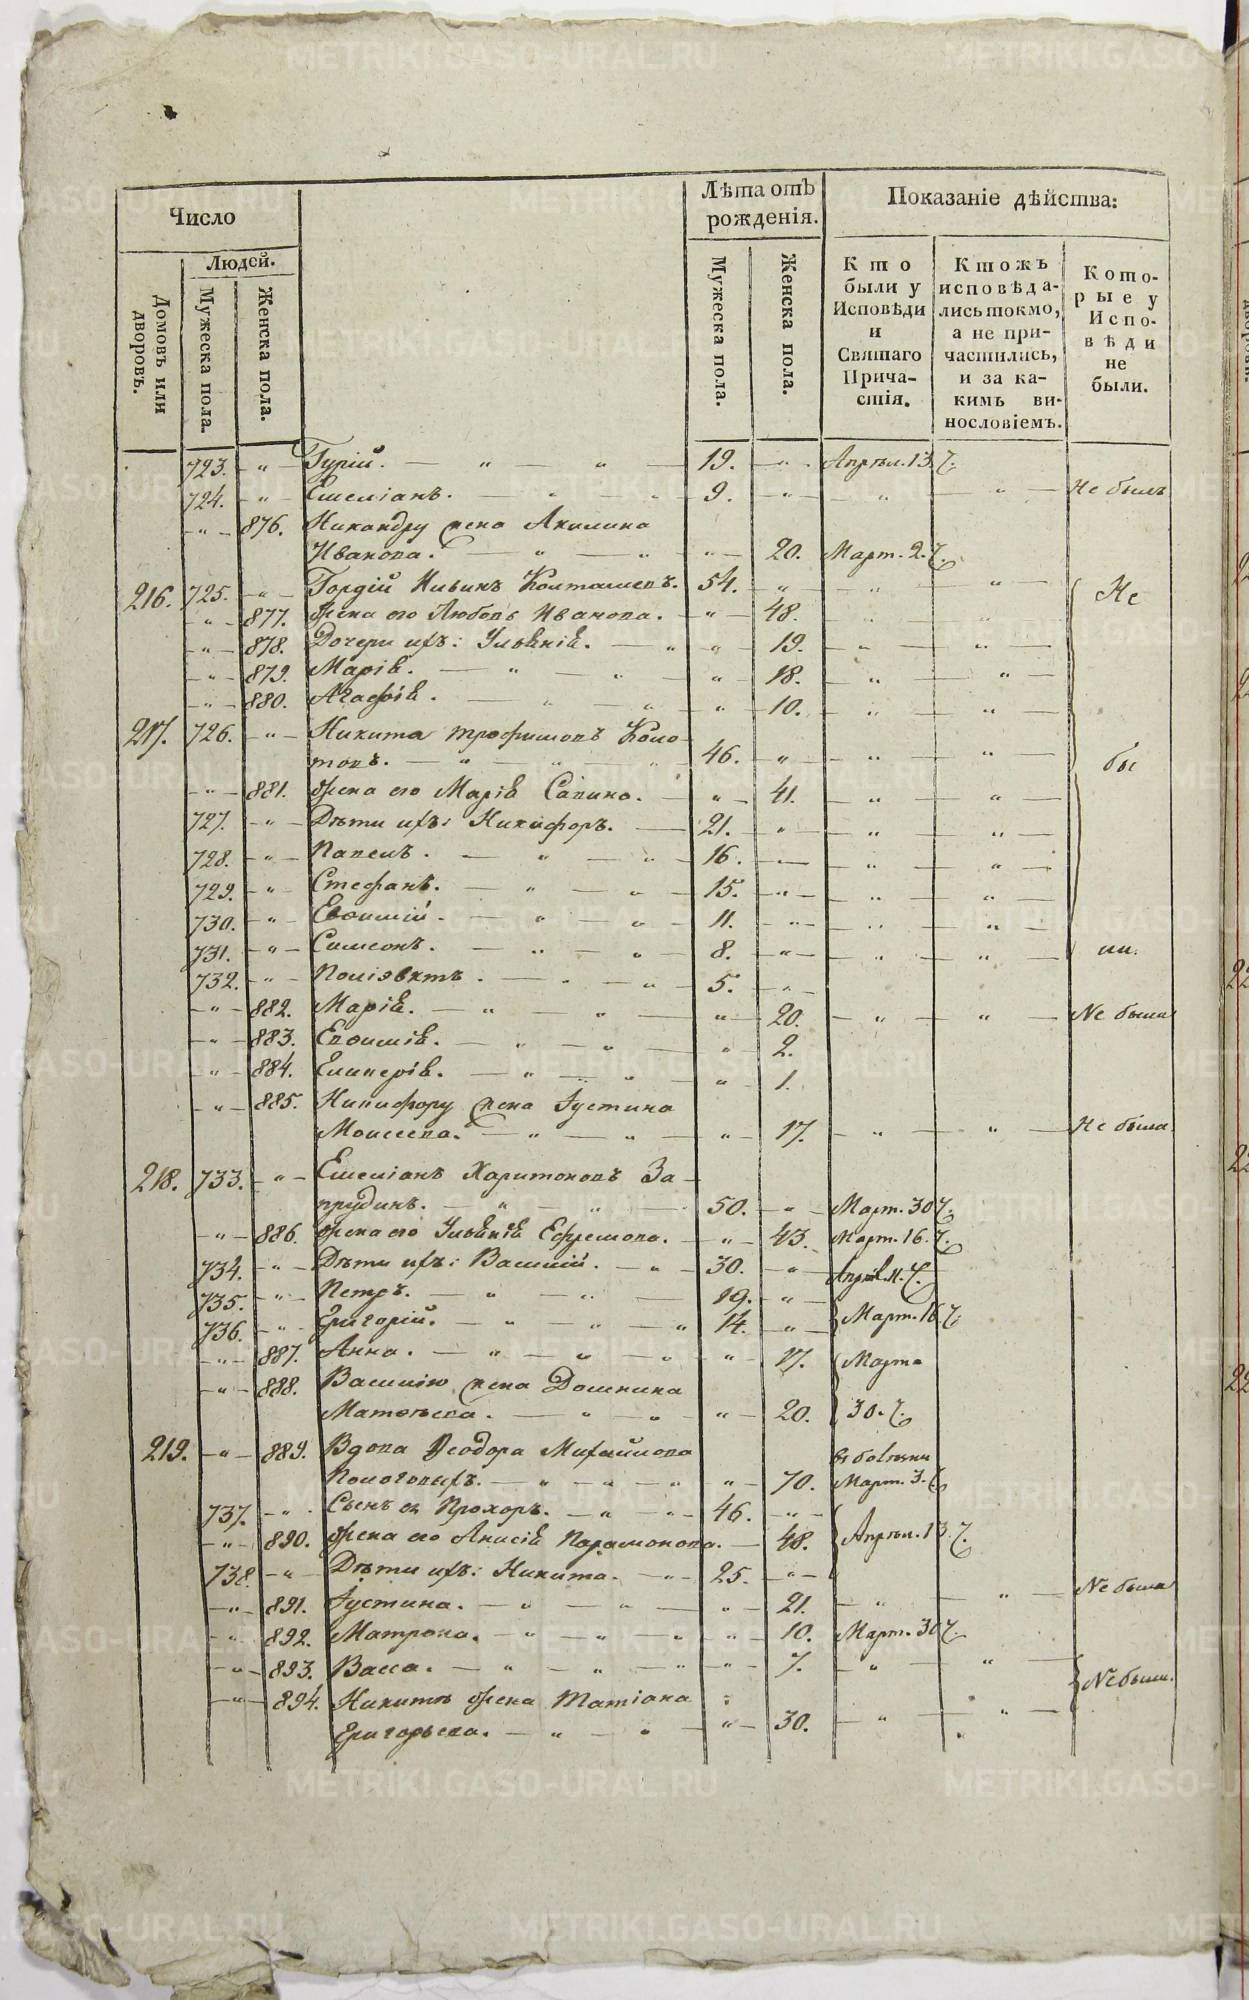 Число
Людей.
Домовъ или дворовъ.
Мужеска пола.
Женска пола.
Лѣта отъ рожденія.
Мужеска пола.
Женска пола.
Показаніе дѣйства:
Кто были у Исповѣди и Святаго Причастія.
Ктожъ исповѣдались токмо, а не причастились, и за какимъ винословіемъ.
Которые у Исповѣди не были.
723. Гурій. 19. Апрѣл. 13.
724. Емеліанъ. 9. Не былъ
876. Никандру жена Акилина
Иванова. 20. Март. 2.
216. 725. Гордій Ильинъ Колташевъ. 54. Не
877. Жена его Любовь Иванова. 48.
878. Дочери ихъ: Ульянія. 19.
879. Марія. 18.
880. Агафія. 10.
217. 726. Никита Трофимовъ Коло-
товъ. 46. бы
881. Жена его Марія Савина. 41.
727. Дѣти ихъ: Никифоръ. 21.
728. Павелъ. 16.
729. Стефанъ. 15.
730. Евѳимій. 11.
731. Симеонъ. 8. ли.
732. Поліэвктъ. 5.
882. Марія. 20. Не была
883. Евѳимія. 2.
884. Гликерія. 1.
885. Никифору жена Іустина
Моисеева. 17. Не была
218. 733. Емеліанъ Харитоновъ За-
прудинъ. 50. Март. 30
886. Жена его Ульянія Ефремова. 43. Март. 16.
734. Дѣти ихъ: Василій. 30. Апрѣл. 11.
735. Петръ. 19.
736. Григорій. 14. Март. 16
887. Анна. 17. Марта
888. Василію жена Домнина
Матвѣева. 20. 30.
219. 889. Вдова Ѳеодора Михайлова въ болѣзни
Пологовыхъ. 70. Март. 3.
737. Сынъ ея Прохоръ. 46.
890. Жена его Анисія Парамонова. 48. Апрѣл. 13.
738. Дѣти ихъ: Никита. 25.
891. Іустина. 21. Не была
892. Матрона. 10. Март. 30
893. Васса. 7.
894. Никитѣ жена Татіана Не были.
Григорьева. 30.
METRIKI.GASO-URAL.RU